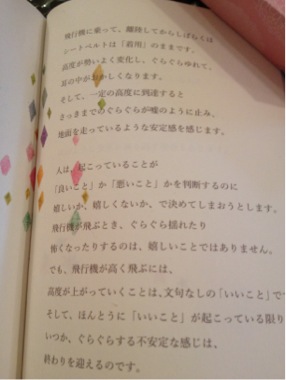 飛行機に乗って、離陸してからしばらくは
シートベルトは「着用」のままです。
高度が勢いよく変化し、ぐらぐらゆれて、
耳の中がおかしくなります。
そして、一定の高度に到達すると
さっきまでのぐらぐらが嘘のように止み、
地面を走っているような安定感を感じます。
人は、起こっていることが
「良いこと」か「悪いこと」かを判断するのに
嬉しいか、嬉しくないか、で決めてしまおうとします。
飛行機が飛ぶとき、ぐらぐら揺れたり
怖くなったりするのは、嬉しいことではありません。
でも、飛行機が高く飛ぶには、
高度が上がっていくことは、文句なしの「いいこと」で
そして、ほんとうに「いいこと」が起こっている限り
いつか、ぐらぐらする不安定な感じは、
終わりを迎えるのです。